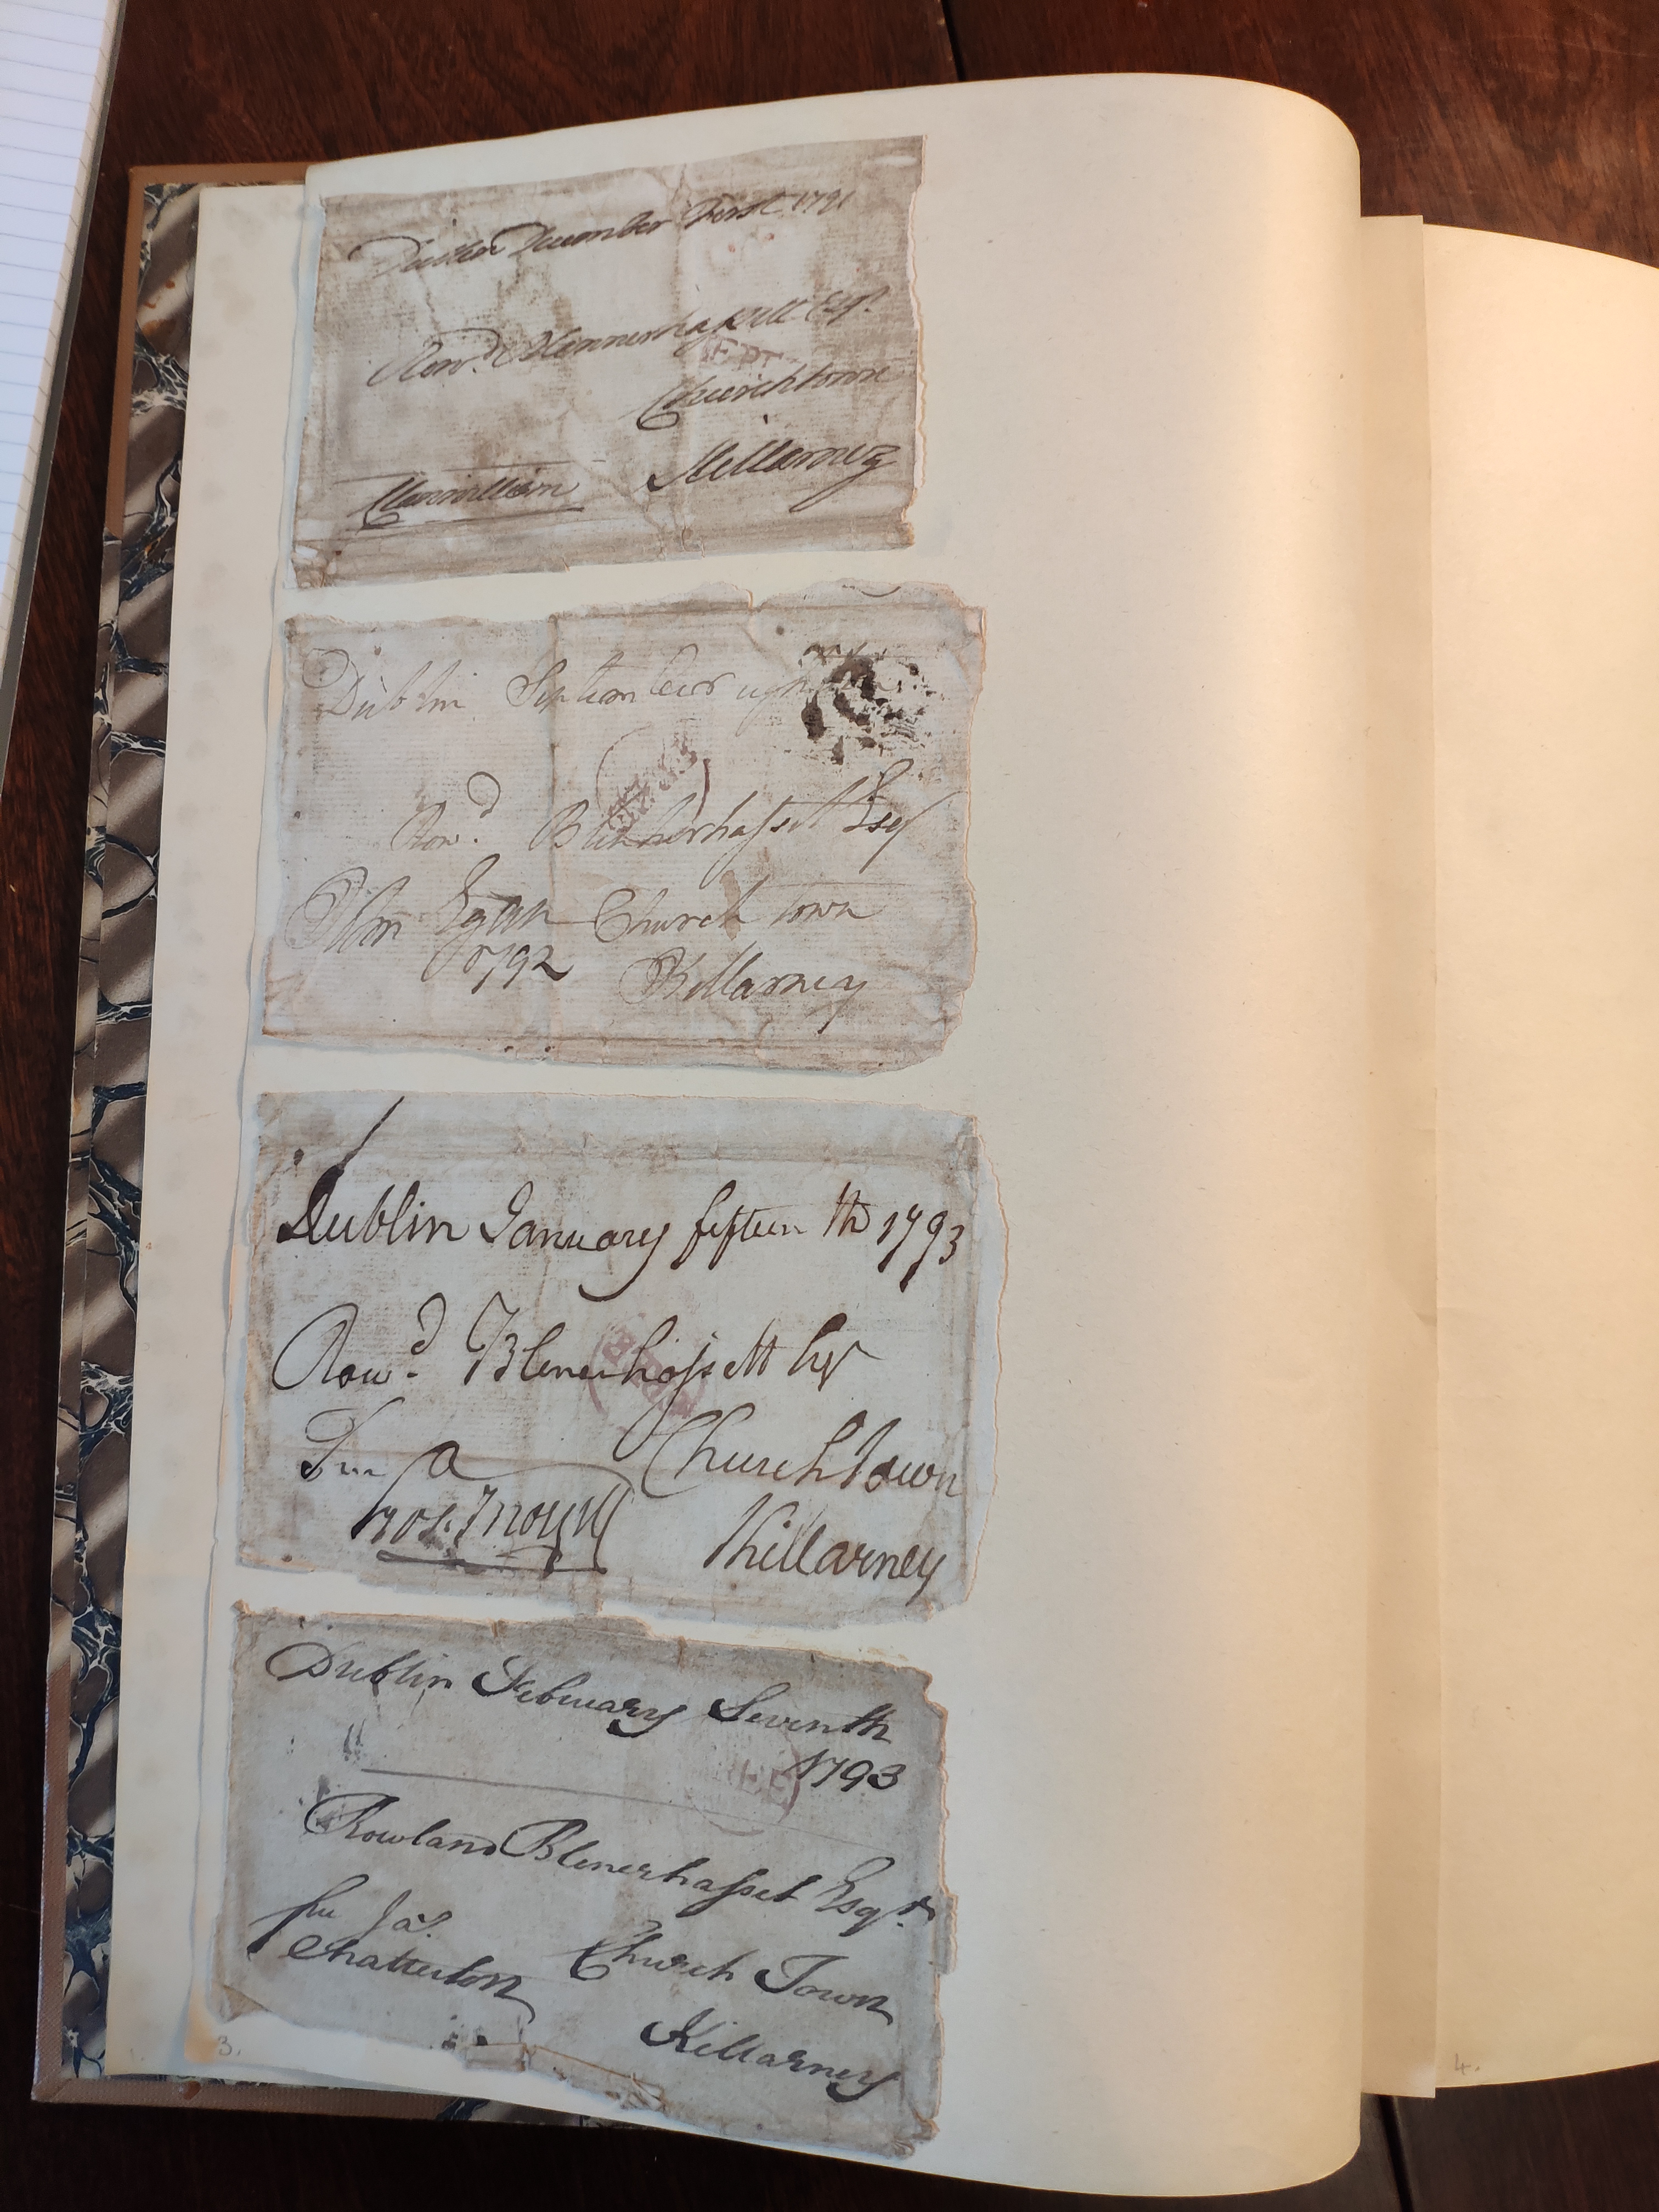 December First 1791
Row.d Blennerhassett Esq.r
Churchtown
Killarney
Dublin September
Row.d Blennerhassett Esq
Church town
Egan
1792
Killarney
Dublin January fifteenth 1793
Row.d Blenerhassett Esqr
Churchtown
Killarney
FREE
Dublin February Seventh
1793
Rowland Blenerhasset Esqr.
free Jas.
Chatterton
Church Town
Killarney
3.
4.